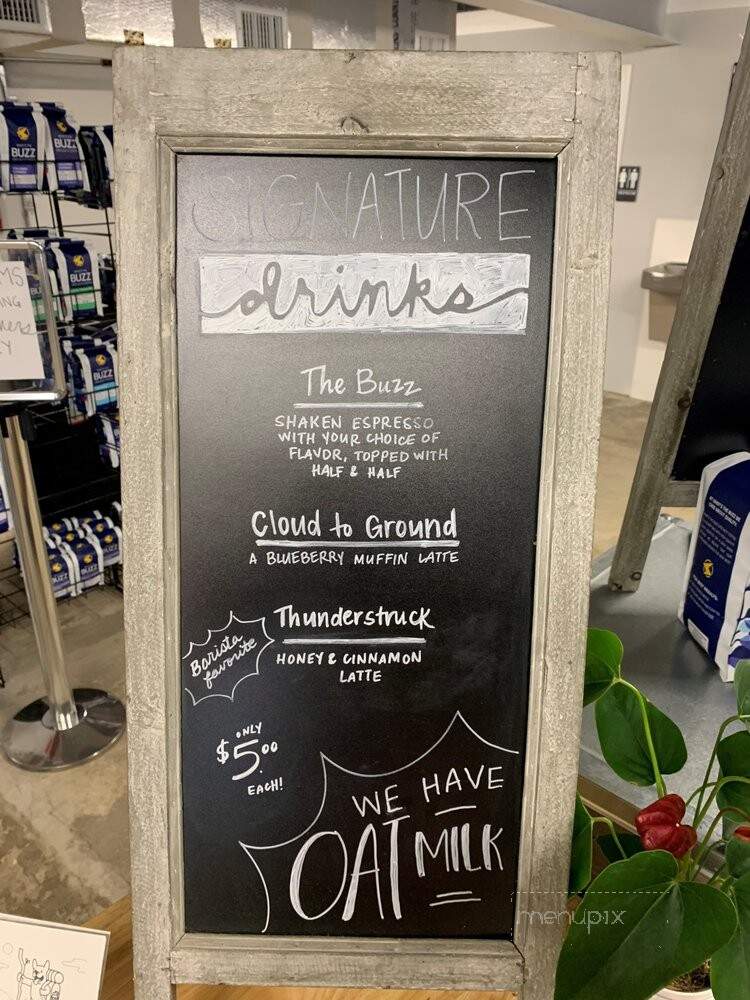 SIGNATURE
drinks
The Buzz
SHAKEN ESPRESSO
WITH YOUR CHOICE OF
FLAVOR, TOPPED WITH
HALF & HALF
Cloud to Ground
A BLUEBERRY MUFFIN LATTE
Thunderstruck
Barista
favorite
HONEY & CINNAMON
LATTE
ONLY
$5.00
EACH!
WE HAVE
OAT MILK
menupix
BUZZ
BUZZ
BUZZ
BUZZ
BUZZ